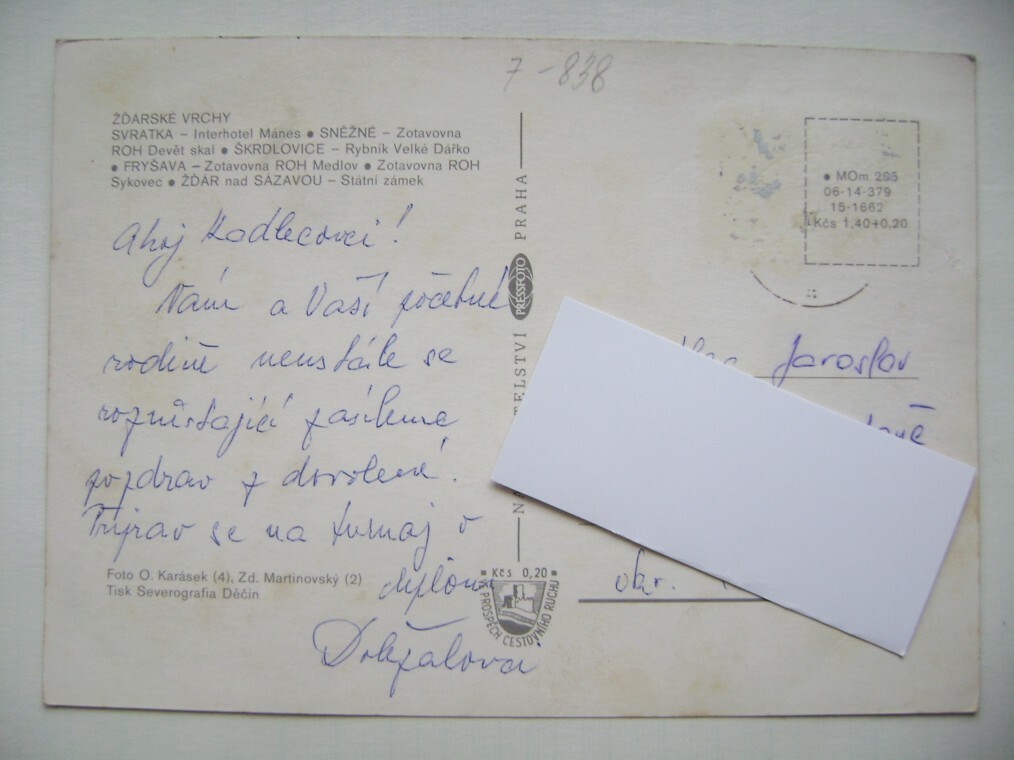 7-838
ŽĎÁRSKÉ VRCHY
SVRATKA – Interhotel Mánes ● SNĚŽNÉ – Zotavovna
ROH Devět skal ● ŠKRDLOVICE – Rybník Velké Dářko
● FRYŠAVA – Zotavovna ROH Medlov ● Zotavovna ROH
Sykovec ● ŽĎÁR nad SÁZAVOU – Státní zámek
Ahoj Kadlecovci!
Vám a Vaší početné
rodině neustále se
rozrůstající zasíláme
pozdrav z dovolené!
Priprav se na turnaj o
diplom
Doležalová
Foto O. Karásek (4), Zd. Martinovský (2)
Tisk Severografia Děčín
PRESSFOTO
PRAHA
● Kčs 0,20 ●
K PROSPĚCH CESTOVNÍHO RUCHU
● MOm 285
06-14-379
15-1662
Kčs 1,40+0,20
Jaroslav
okr.